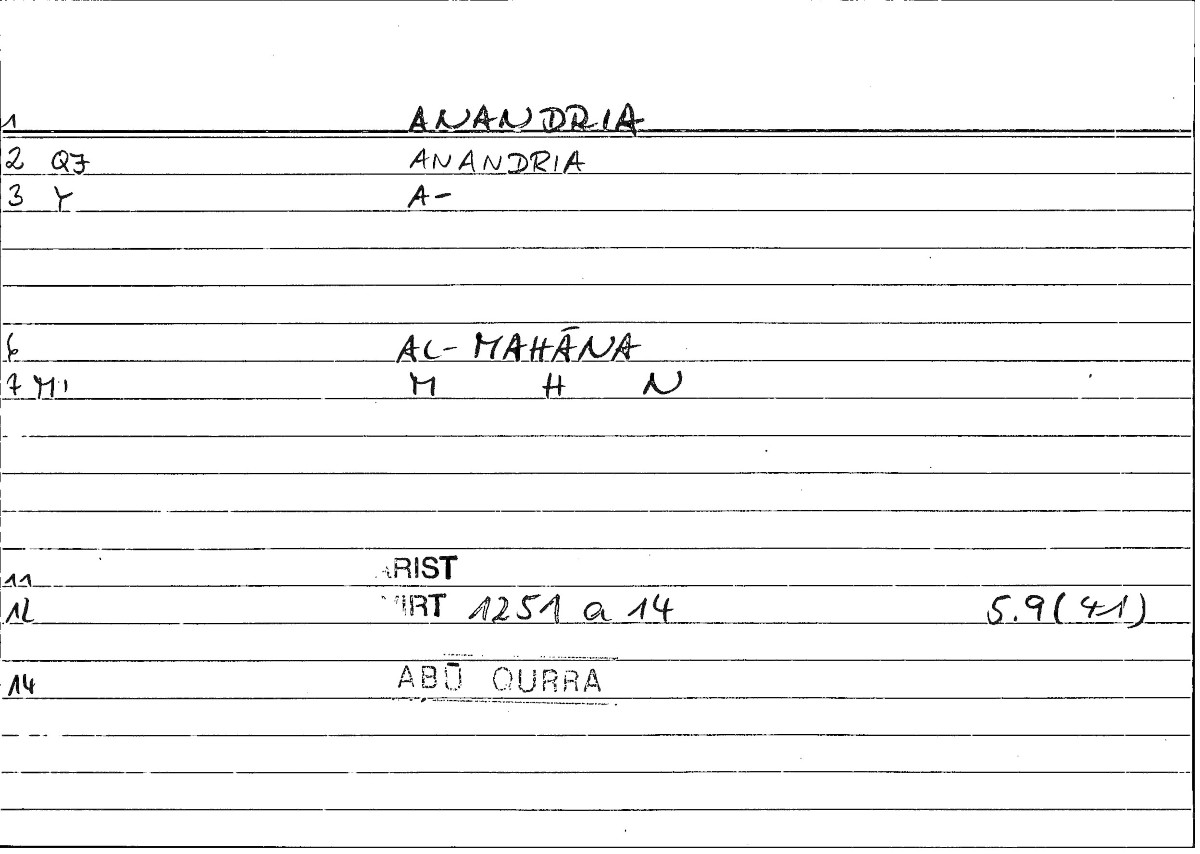 1 ANANDRIA
2 QJ ANANDRIA
3 Y A-
6 AL-MAHĀNA
7 M1 M H N
11 ARIST
12 VIRT 1251 a 14 5.9(41)
14 ABŪ QURRA